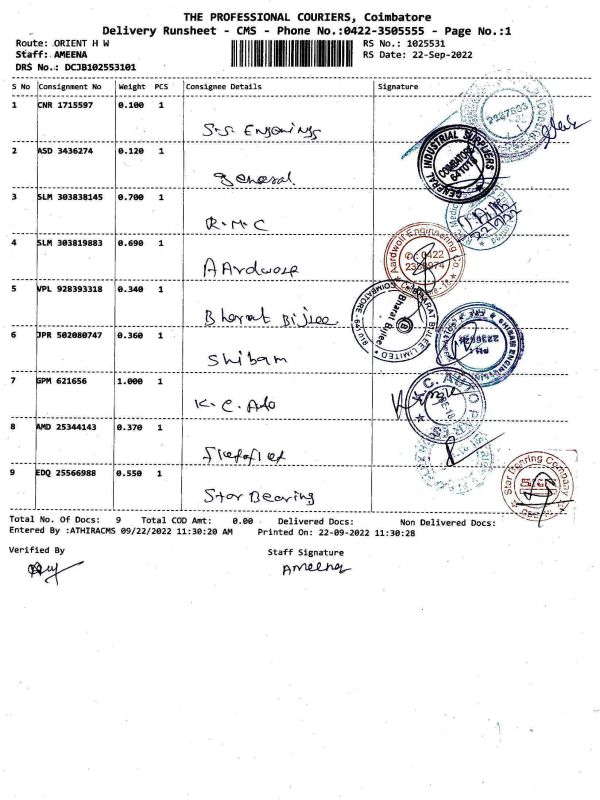 THE PROFESSIONAL COURIERS, Coimbatore
Delivery Runsheet - CMS - Phone No.:0422-3505555 - Page No.:1
Route: ORIENT H W RS No.: 1025531
Staff: AMEENA RS Date: 22-Sep-2022
DRS No.: DCJB102553101
S No Consignment No Weight PCS Consignee Details Signature
1 CNR 1715597 0.100 1
S.S. Engonings
2 ASD 3436274 0.120 1
General
GENERAL INDUSTRIAL SUPPLIERS
COIMBATORE
3 SLM 303838145 0.700 1
R.M.C
4 SLM 303819883 0.690 1
AArdwose
Aardwolf Engineering Co.
0422
5 VPL 928393318 0.340 1
Bharat Bijlee
BHARAT BIJLEE LIMITED
COIMBATORE
Bharat Bijlee
6 JPR 502080747 0.360 1
Shibam
SHIBAM ENGINEERING
7 GPM 621656 1.000 1
K.C. Auto
K.C. AUTO SPARES
8 AMD 25344143 0.370 1
9 EDQ 25566988 0.550 1
Star Bearing
Star Bearing Company
Total No. Of Docs: 9 Total COD Amt: 0.00 Delivered Docs: Non Delivered Docs:
Entered By :ATHIRACMS 09/22/2022 11:30:20 AM Printed On: 22-09-2022 11:30:28
Verified By Staff Signature
Ameena